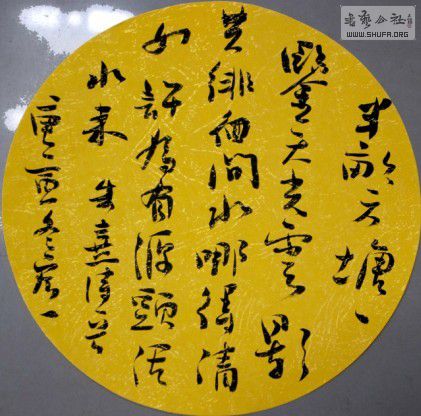 書藝公社
WWW.SHUFA.ORG
半畝方塘一
鑒天光雲影
共徘徊問水哪得清
如許為有源頭活
水來 朱熹
冬